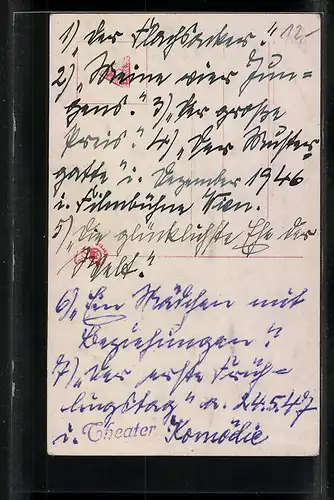 1) „Der Flachsacker." 12.-
2) „Meine vier Jun-
gens." 3) „Der große
Preis." 4) „Der Muster-
gatte" i. Dezember 1946
i. Filmbühne Wien.
5) „Die glücklichste Ehe der
Welt."
6) „Ein Mädchen mit
Beziehungen."
7) „Der erste Früh-
lingstag" a. 24.5.47
i. Theater Komödie